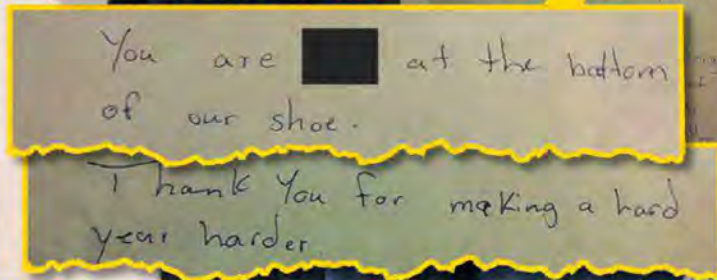 You are at the bottom
of our shoe.
Thank You for making a hard
year harder